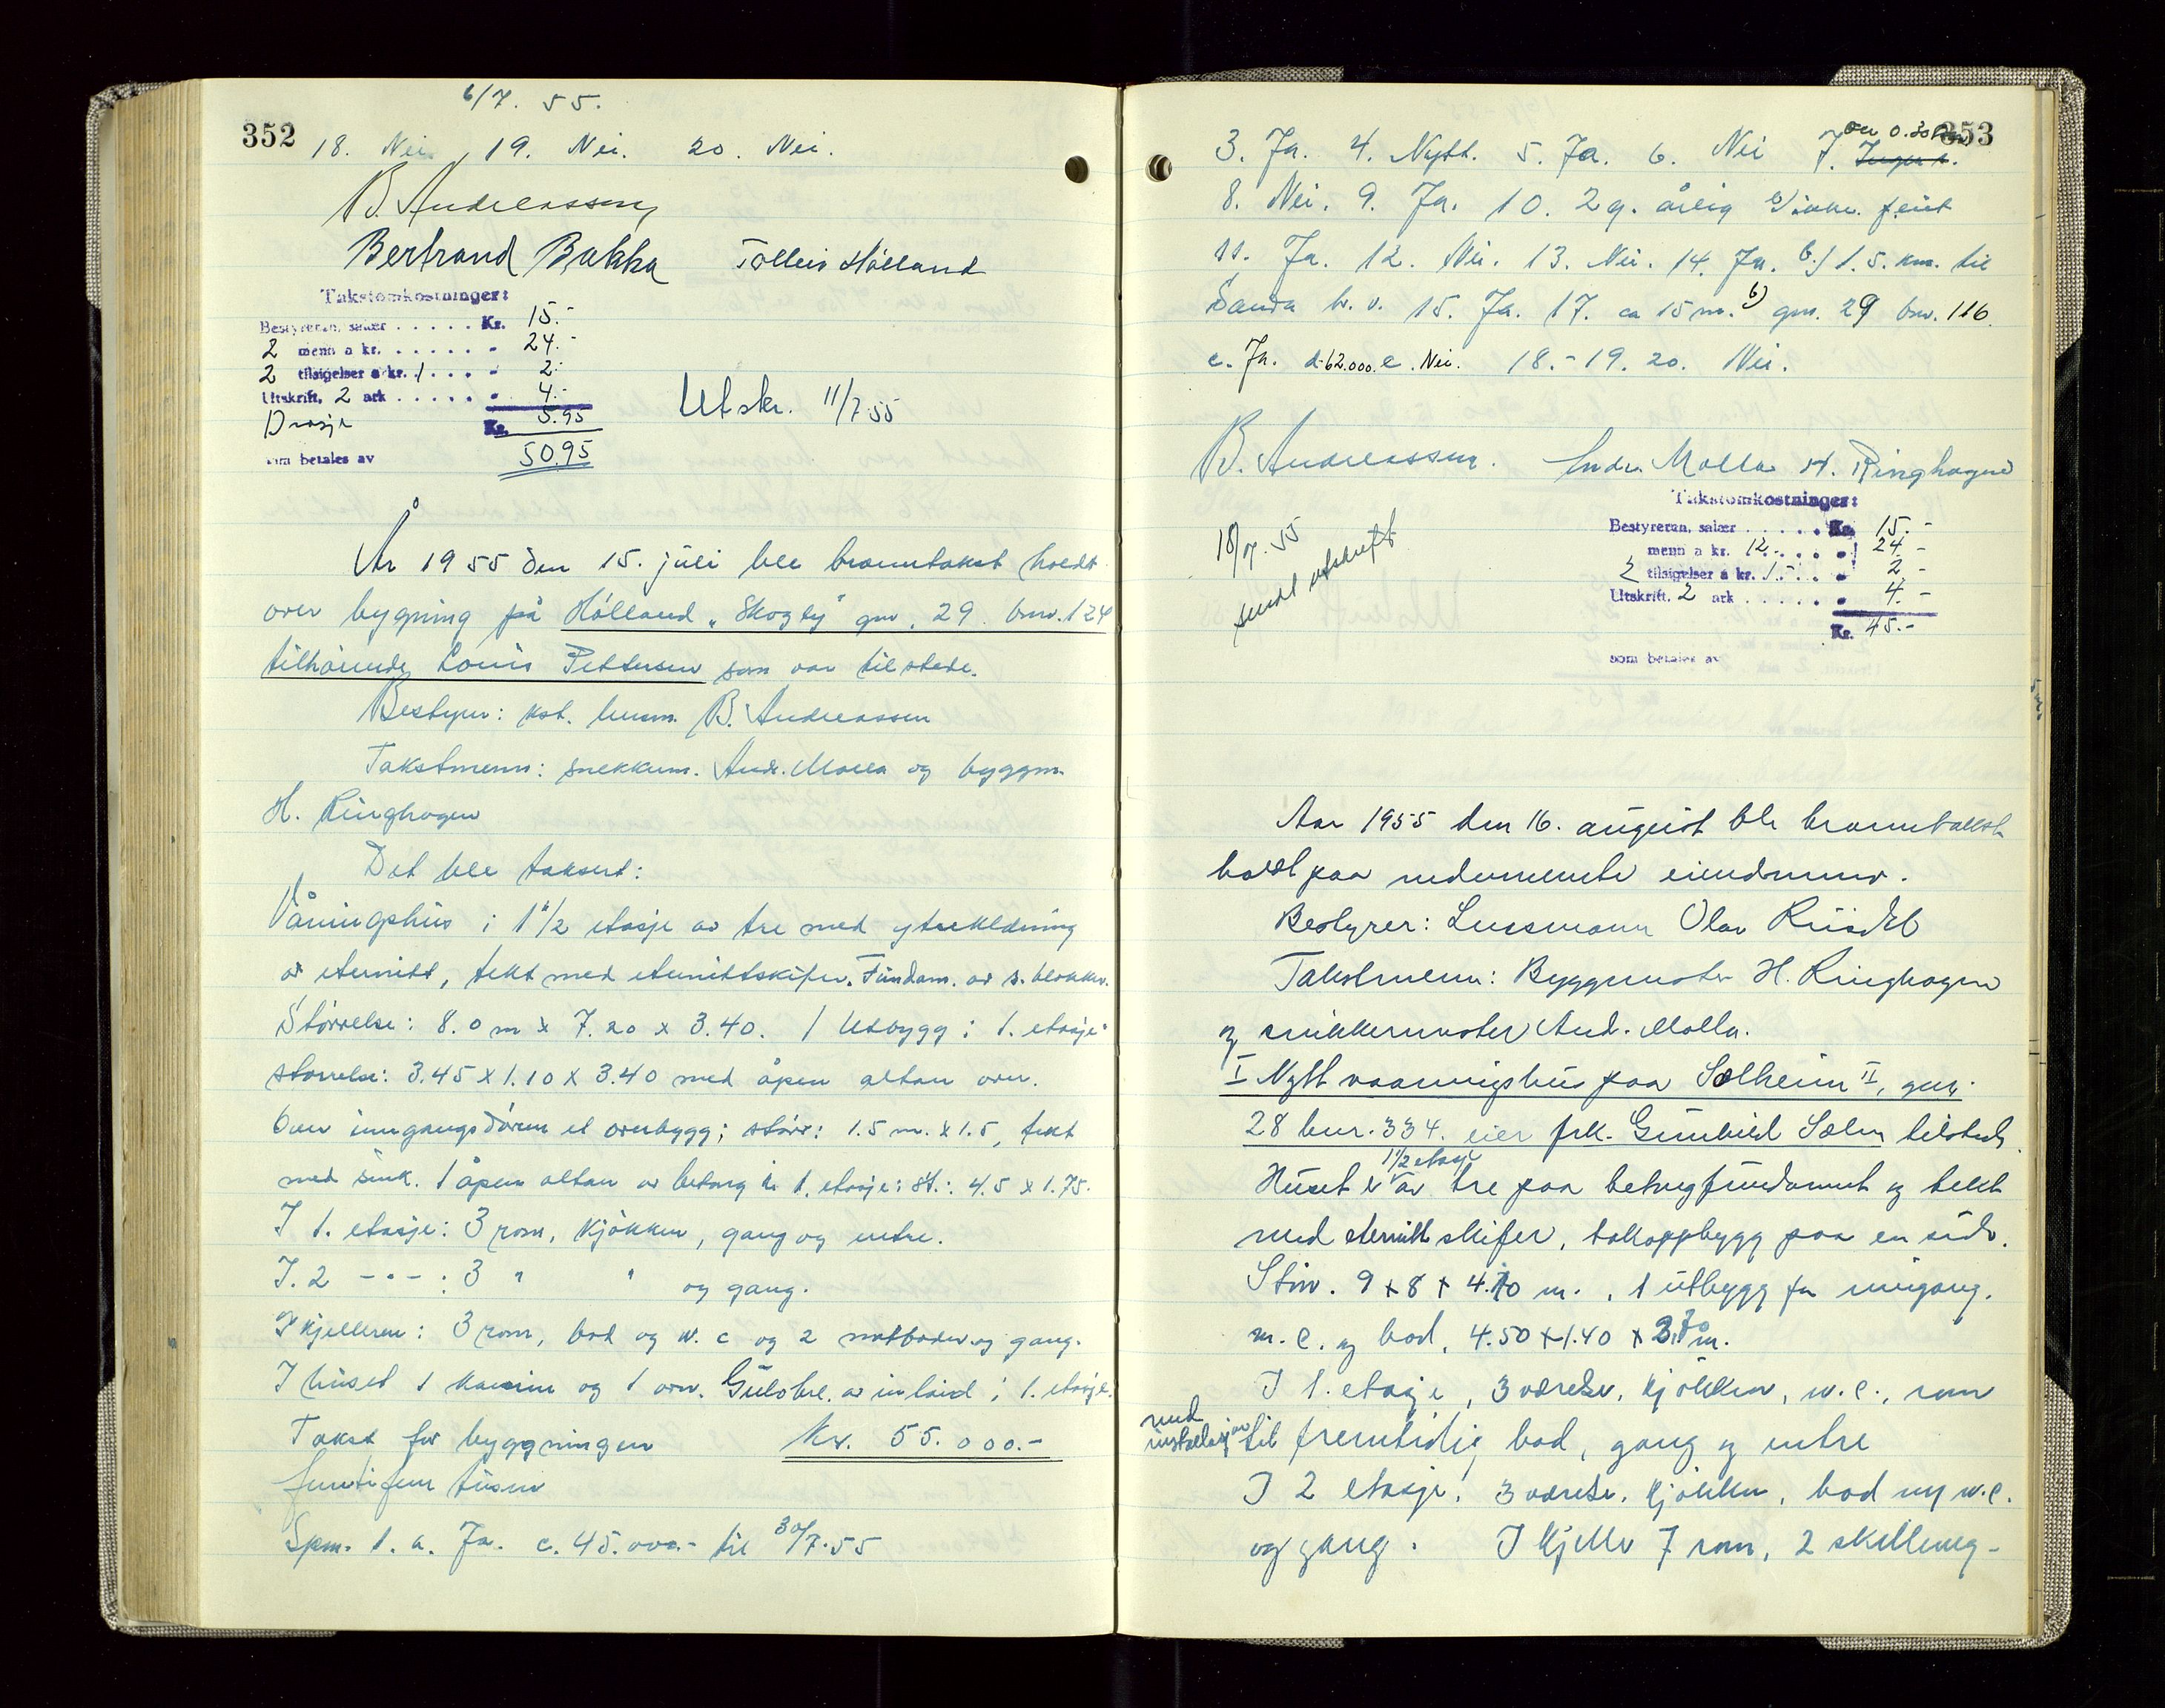 6/7. 55.
352
18. Nei. 19. Nei. 20. Nei.
B. Andreassen
Bertrand Bakka Tolleiv Hålland
Takstomkostninger:
Bestyreren, salær ..... Kr. 15.-
2 menn a kr. ...... - 24.-
2 tilsigelser a kr. 1 ... - 2.-
Utskrift, 2 ark ...... - 4.-
Drosje 5.95
Kr. 50.95
som betales av
Utskr. 11/7 55
År 1955 den 15. juli ble branntakst holdt
over bygning på Hålland „Skogly" gnr. 29. bnr. 124
tilhørende Louis Pettersen som var tilstede.
Bestyrer: kst. lensm. B. Andreassen
Takstmenn: snekkerm. Andr. Molla og byggm.
H. Ringhagen
Det ble taksert:
Våningshus i 1 1/2 etasje av tre med ytrekledning
av eternitt, tekt med eternittskifer. Fundam. av s. blokker.
Størrelse: 8.0 m x 7.20 x 3.40. 1 Utbygg i 1. etasje
størrelse: 3.45 x 1.10 x 3.40 med åpen altan over.
Over inngangsdøren et overbygg; størr: 1.5 m. x 1.5, tekt
med sink. 1 åpen altan av betong i 1. etasje: st.: 4.5 x 1.75.
I 1. etasje: 3 rom, kjøkken, gang og entre.
I. 2 -"- : 3 " " og gang.
I kjelleren: 3 rom, bad og w. c og 2 matboder og gang.
I huset 1 kamin og 1 ovn. Gulvbel. av inlaid i 1. etasje.
Takst for byggningen kr. 55.000.-
femtifem tusen
Spm. 1. a. Ja. c. 45.000.- til 30/7.55
353
3. Ja. 4. Nytt. 5. Ja. 6. Nei 7. Ingen. over 0.30
8. Nei. 9. Ja. 10. 2 g. årlig c/ ikke feiet
11. Ja. 12. Nei. 13. Nei. 14. Ja. b/ 1.5. km. til
Sanda br. v. 15. Ja. 17. ca 15 m. b) gnr. 29 bnr. 116.
c. Ja. d. 62.000. e. Nei. 18.- 19. 20. Nei.
B. Andreassen. Andr. Molla H. Ringhagen
18/7. 55
sendt utskrift
Takstomkostninger:
Bestyreren, salær ..... Kr. 15.-
menn a kr. 12.-.... - 24.-
2 tilsigelser a kr. 1.-... - 2.-
Utskrift. 2 ark ..... - 4.-
Kr. 45.-
som betales av
Aar 1955 den 16. august ble branntakst
holdt paa nedennevnte eiendommer.
Bestyrer: Lensmann Olav Riisdal
Takstmenn: Byggmester H. Ringhagen
og snikkermester And. Molla.
I Nytt vaaningshus paa Sælheim II, gnr.
28 bnr. 334. eier frk. Gunhild Sælen tilstede.
Huset er 1 1/2 etasje av tre paa betongfundament og tekt
med eternittskifer, takoppbygg paa en side.
Størr. 9 + 8 + 4.10 m., 1 utbygg for inngang.
w. c. og bod, 4.50 + 1.40 + 3.70 m.
I 1. etasje, 3 værelser, kjøkken, w.c., rom
med installasjon til fremtidig bad, gang og entre
I 2 etasje. 3 værelser, kjøkken, bad og w.c.
og gang. I kjeller 7 rom, 2 skilleveg-